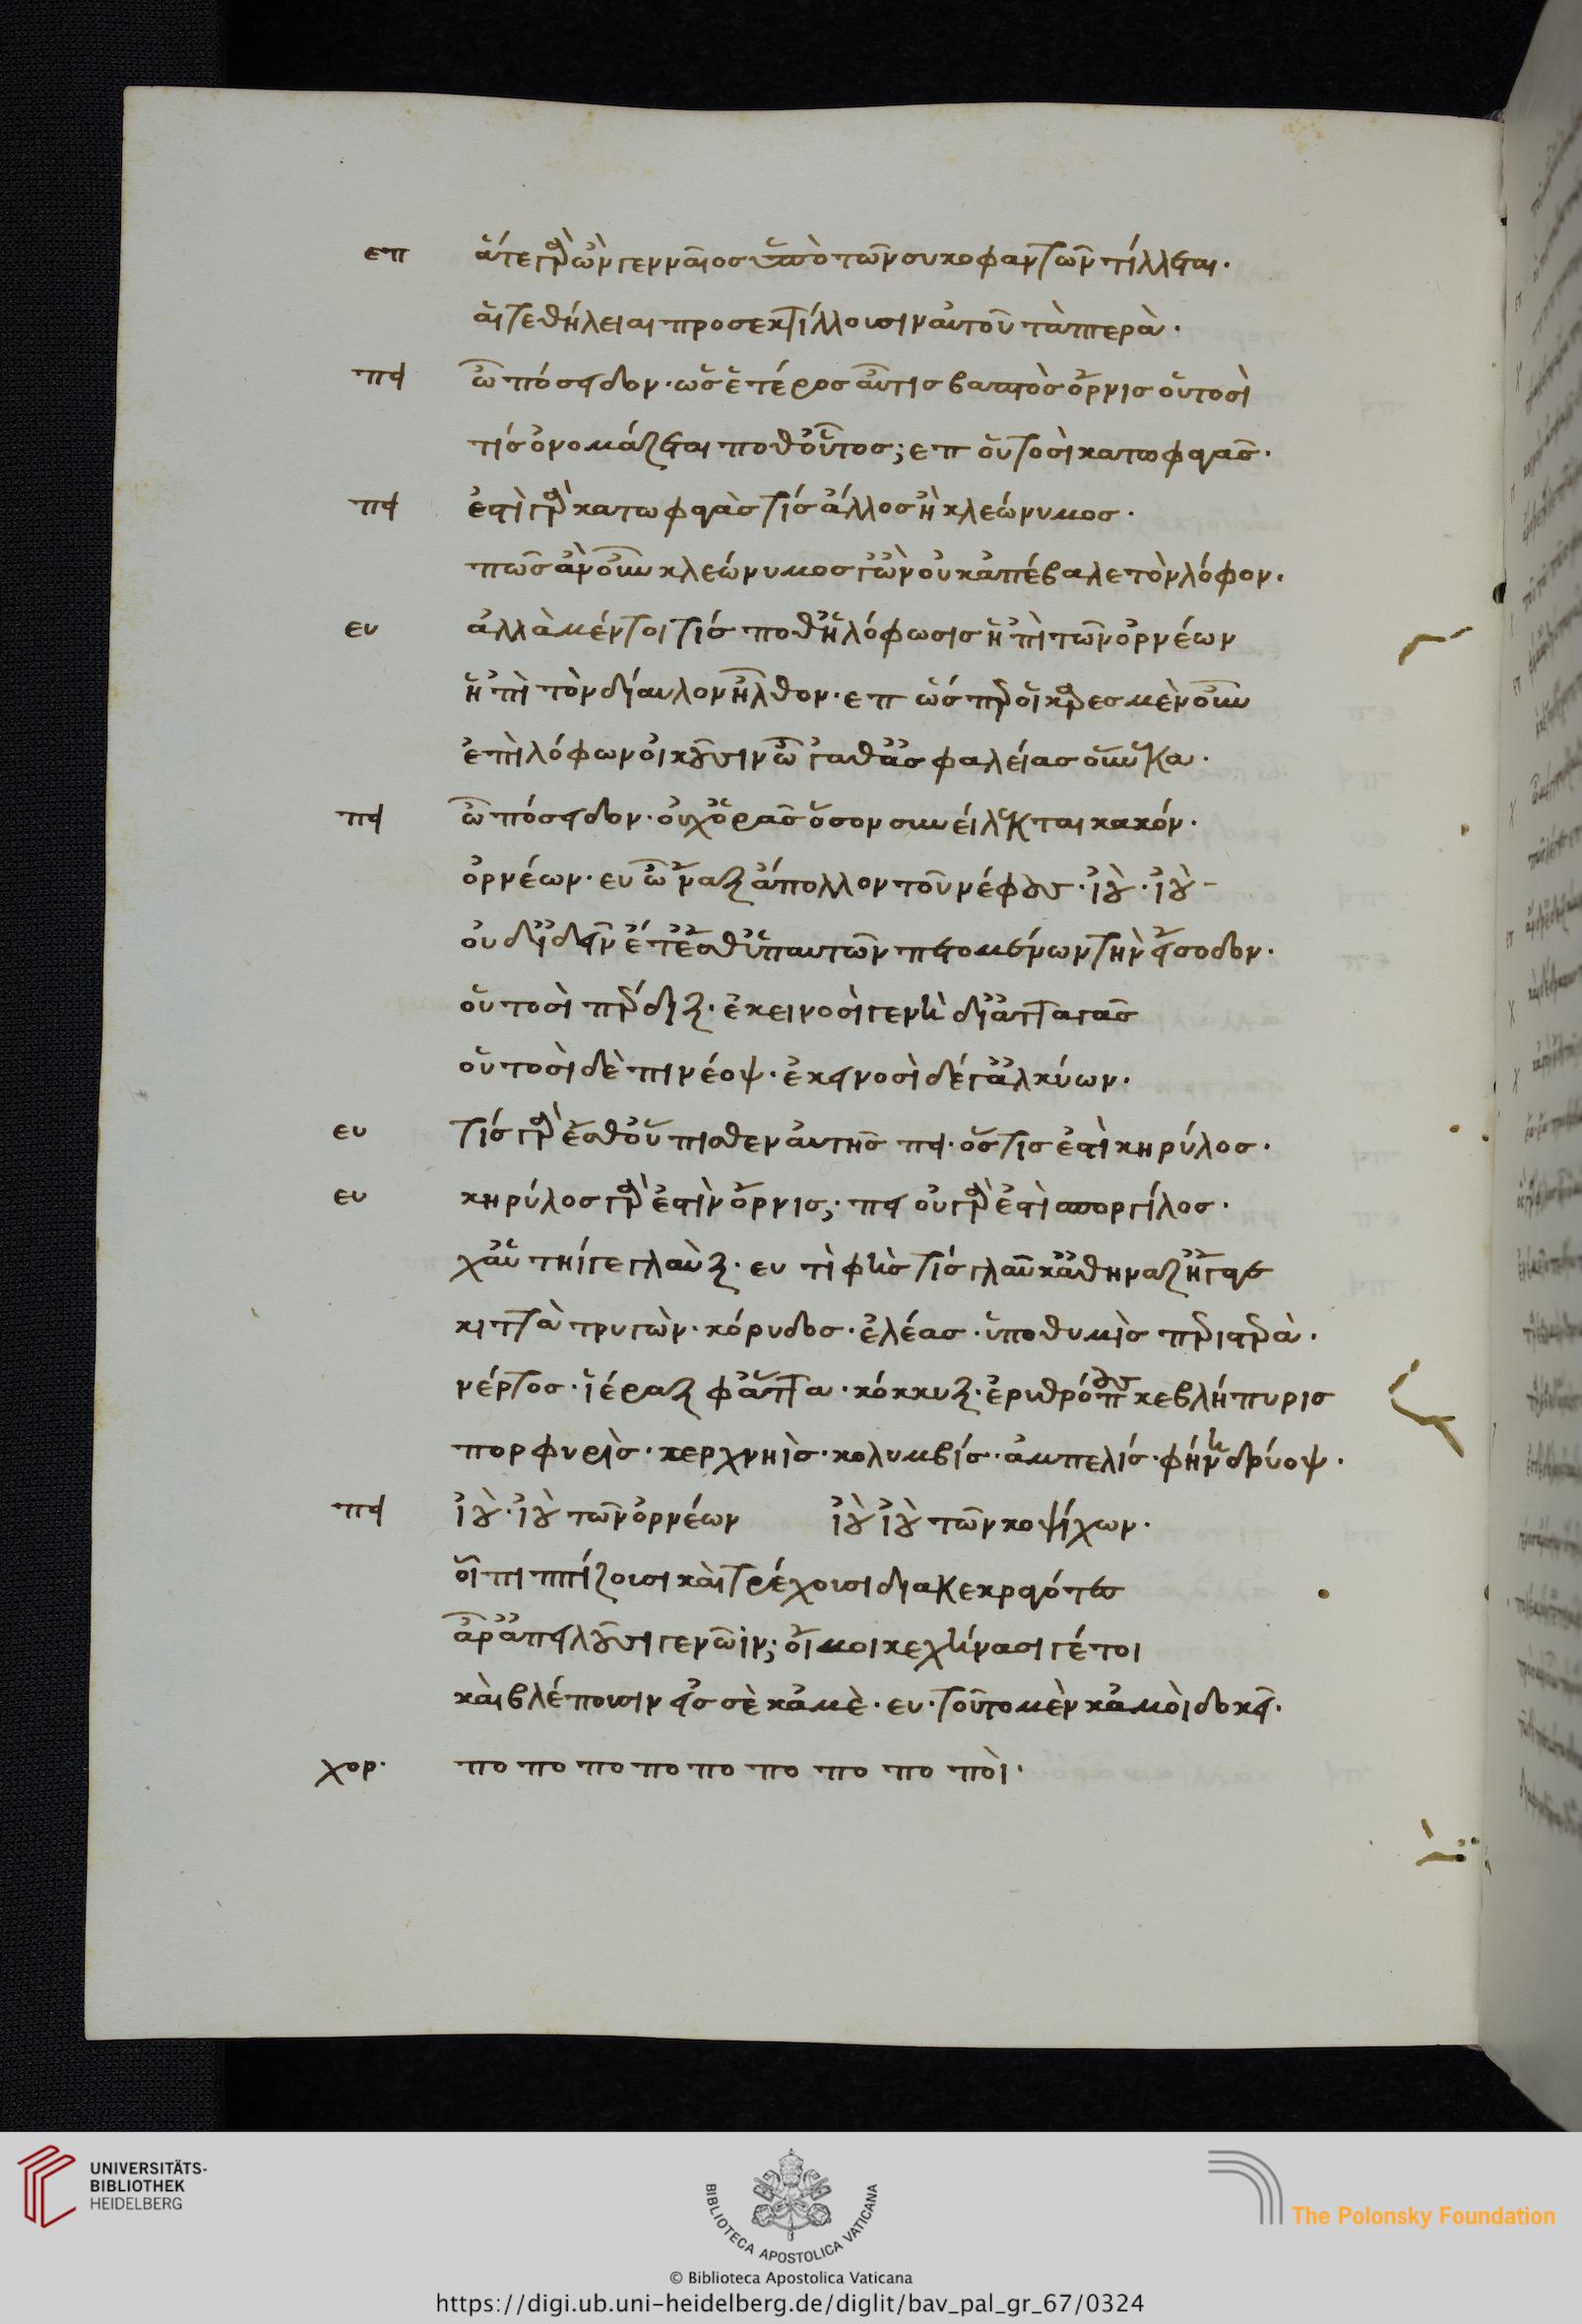 επ ἅτε γὰρ ὢν γενναῖος ὑπὸ τῶν συκοφαντῶν τίλλεται.
αἵ τε θήλειαι προσεκτίλλουσιν αὐτοῦ τὰ πτερά.
πει ὦ πόσειδον. ὡς ἕτέρος αὖ τις βαπτὸς ὄρνις οὑτοσὶ
τίς ὀνομάζεται ποθ' οὗτος; επ οὑτοσὶ κατωφαγᾶς.
πει ἐστὶ γὰρ κατωφαγὰς τίς ἄλλος ἢ κλεώνυμος.
πῶς ἂν οὖν κλεώνυμος γ' ὢν οὐκ ἀπέβαλε τὸν λόφον.
ευ ἀλλὰ μέντοι τίς ποθ' ἡ λόφωσις ἡ 'πὶ τῶν ὀρνέων
ἢ 'πὶ τὸν δίαυλον ἦλθον. επ ὥσπερ οἱ κᾶρες μὲν οὖν
ἐπὶ λόφων οἰκοῦσιν ὦ 'γαθ' ἀσφαλείας οὕνεκα.
πει ὦ πόσειδον. οὐχ ὁρᾶς ὅσον συνείλεκται κακόν.
ὀρνέων. ευ ὦ 'ναξ ἄπολλον τοῦ νέφους. ἰοὺ. ἰοὺ
οὐδ' ἰδεῖν ἔτ' ἔσθ' ὑπ' αὐτῶν πετομένων τὴν εἴσοδον.
οὑτοσὶ πέρδιξ. ἐκεινοσὶ γε νὴ δί' ἀτταγᾶς
οὑτοσὶ δὲ πινέοψ. ἐκεινοσὶ δέ γ' ἀλκύων.
ευ τίς γὰρ ἔσθ' οὔπισθεν αὐτῆς πει. ὅστις ἐστὶ κηρύλος.
ευ κηρύλος γὰρ ἐστὶν ὄρνις; πει οὐ γάρ ἐστι σποργίλος.
χαὕτηί γε γλαὺξ. ευ τὶ φὴς τίς γλαῦκ' ἀθήναζ' ἤγαγε
κιττὰ τρυγὼν. κόρυδος. ἐλέας. ὑποθυμὶς περιστερὰ.
νέρτος. ἱέραξ φάττα. κόκκυξ. ἐρυθρόπους κεβλήπυρις
πορφυρὶς. κερχνηὶς. κολυμβίς. ἀμπελίς. φήνη δρύοψ.
πει ἰοὺ. ἰοὺ τῶν ὀρνέων ἰοὺ ἰοὺ τῶν κοψίχων.
οἷ πιππίζουσι καὶ τρέχουσι διακεκραγότες
ἆρ' ἀπειλοῦσί γε νῶϊν; οἴμοι κεχήνασί γέ τοι
καὶ βλέπουσιν εἰς σὲ κἀμὲ. ευ. τοῦτο μὲν κἀμοὶ δοκεῖ.
χορ. πο πο πο πο πο πο πο πο ποὶ.
UNIVERSITÄTS-
BIBLIOTHEK
HEIDELBERG
BIBLIOTECA APOSTOLICA VATICANA
The Polonsky Foundation
© Biblioteca Apostolica Vaticana
https://digi.ub.uni-heidelberg.de/diglit/bav_pal_gr_67/0324